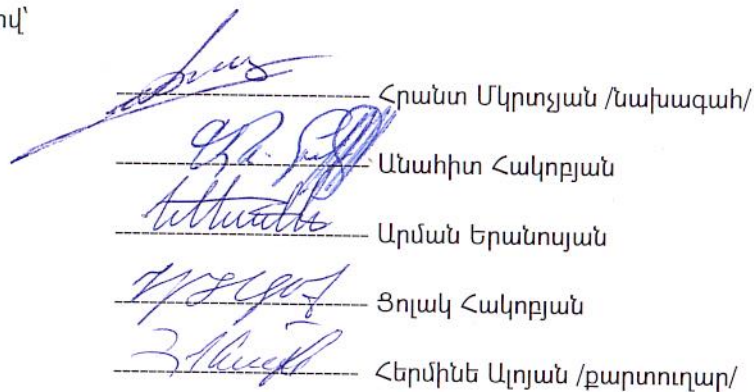 ով՝
Հրանտ Մկրտչյան /նախագահ/
Անահիտ Հակոբյան
Արման Երանոսյան
Ցոլակ Հակոբյան
Հերմինե Ալոյան /քարտուղար/